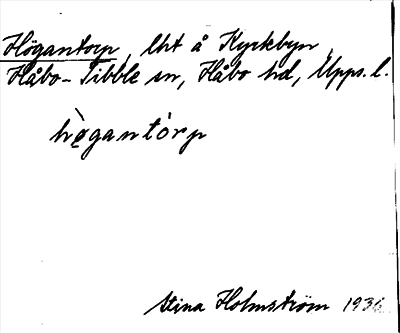 Högantorp, lht å Kyrkbyn,
Håbo-Tibble sn, Håbo hd, Upps. l.
hø̀gantórp
Stina Holmström 1936